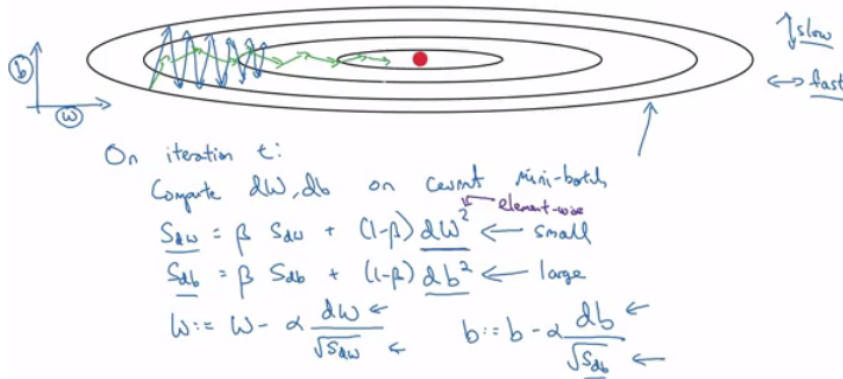 slow
b
fast
w
On iteration t:
Compute dW, db on current mini-batch
element-wise
S_dw = β S_dw + (1-β) dW² ← small
S_db = β S_db + (1-β) db² ← large
W := W - α dW/√S_dw   b := b - α db/√S_db